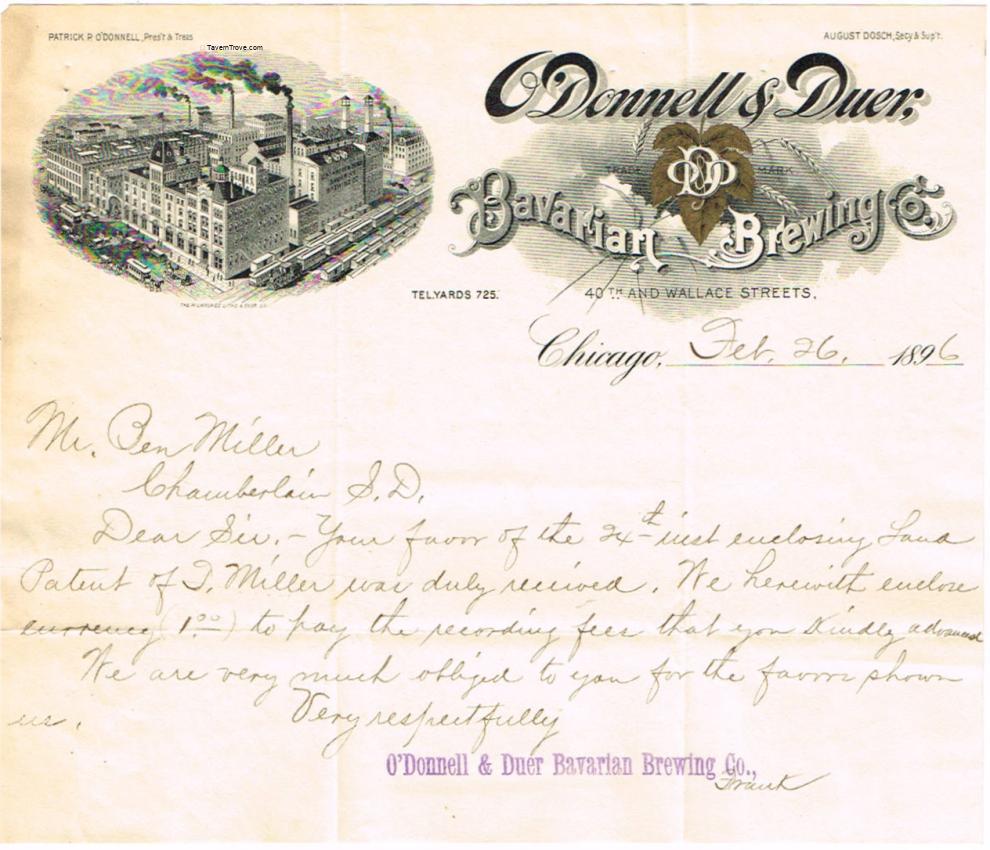 PATRICK P. O'DONNELL, Pres't & Treas
AUGUST DOSCH, Secy & Sup't.
TavernTrove.com
O'Donnell & Duer,
TRADE MARK
Bavarian Brewing Co.
TEL.YARDS 725.
40TH AND WALLACE STREETS.
THE MILWAUKEE LITHO & ENGR. CO.
Chicago, Feb. 26, 1896
Mr. Ben Miller
Chamberlain S.D.
Dear Sir,- Your favor of the 24th inst enclosing Land
Patent of T. Miller was duly received. We herewith enclose
currency (1.00) to pay the recording fees that you Kindly advanced
We are very much obliged to you for the favors shown
us.
Very respectfully
O'Donnell & Duer Bavarian Brewing Co.,
Frank